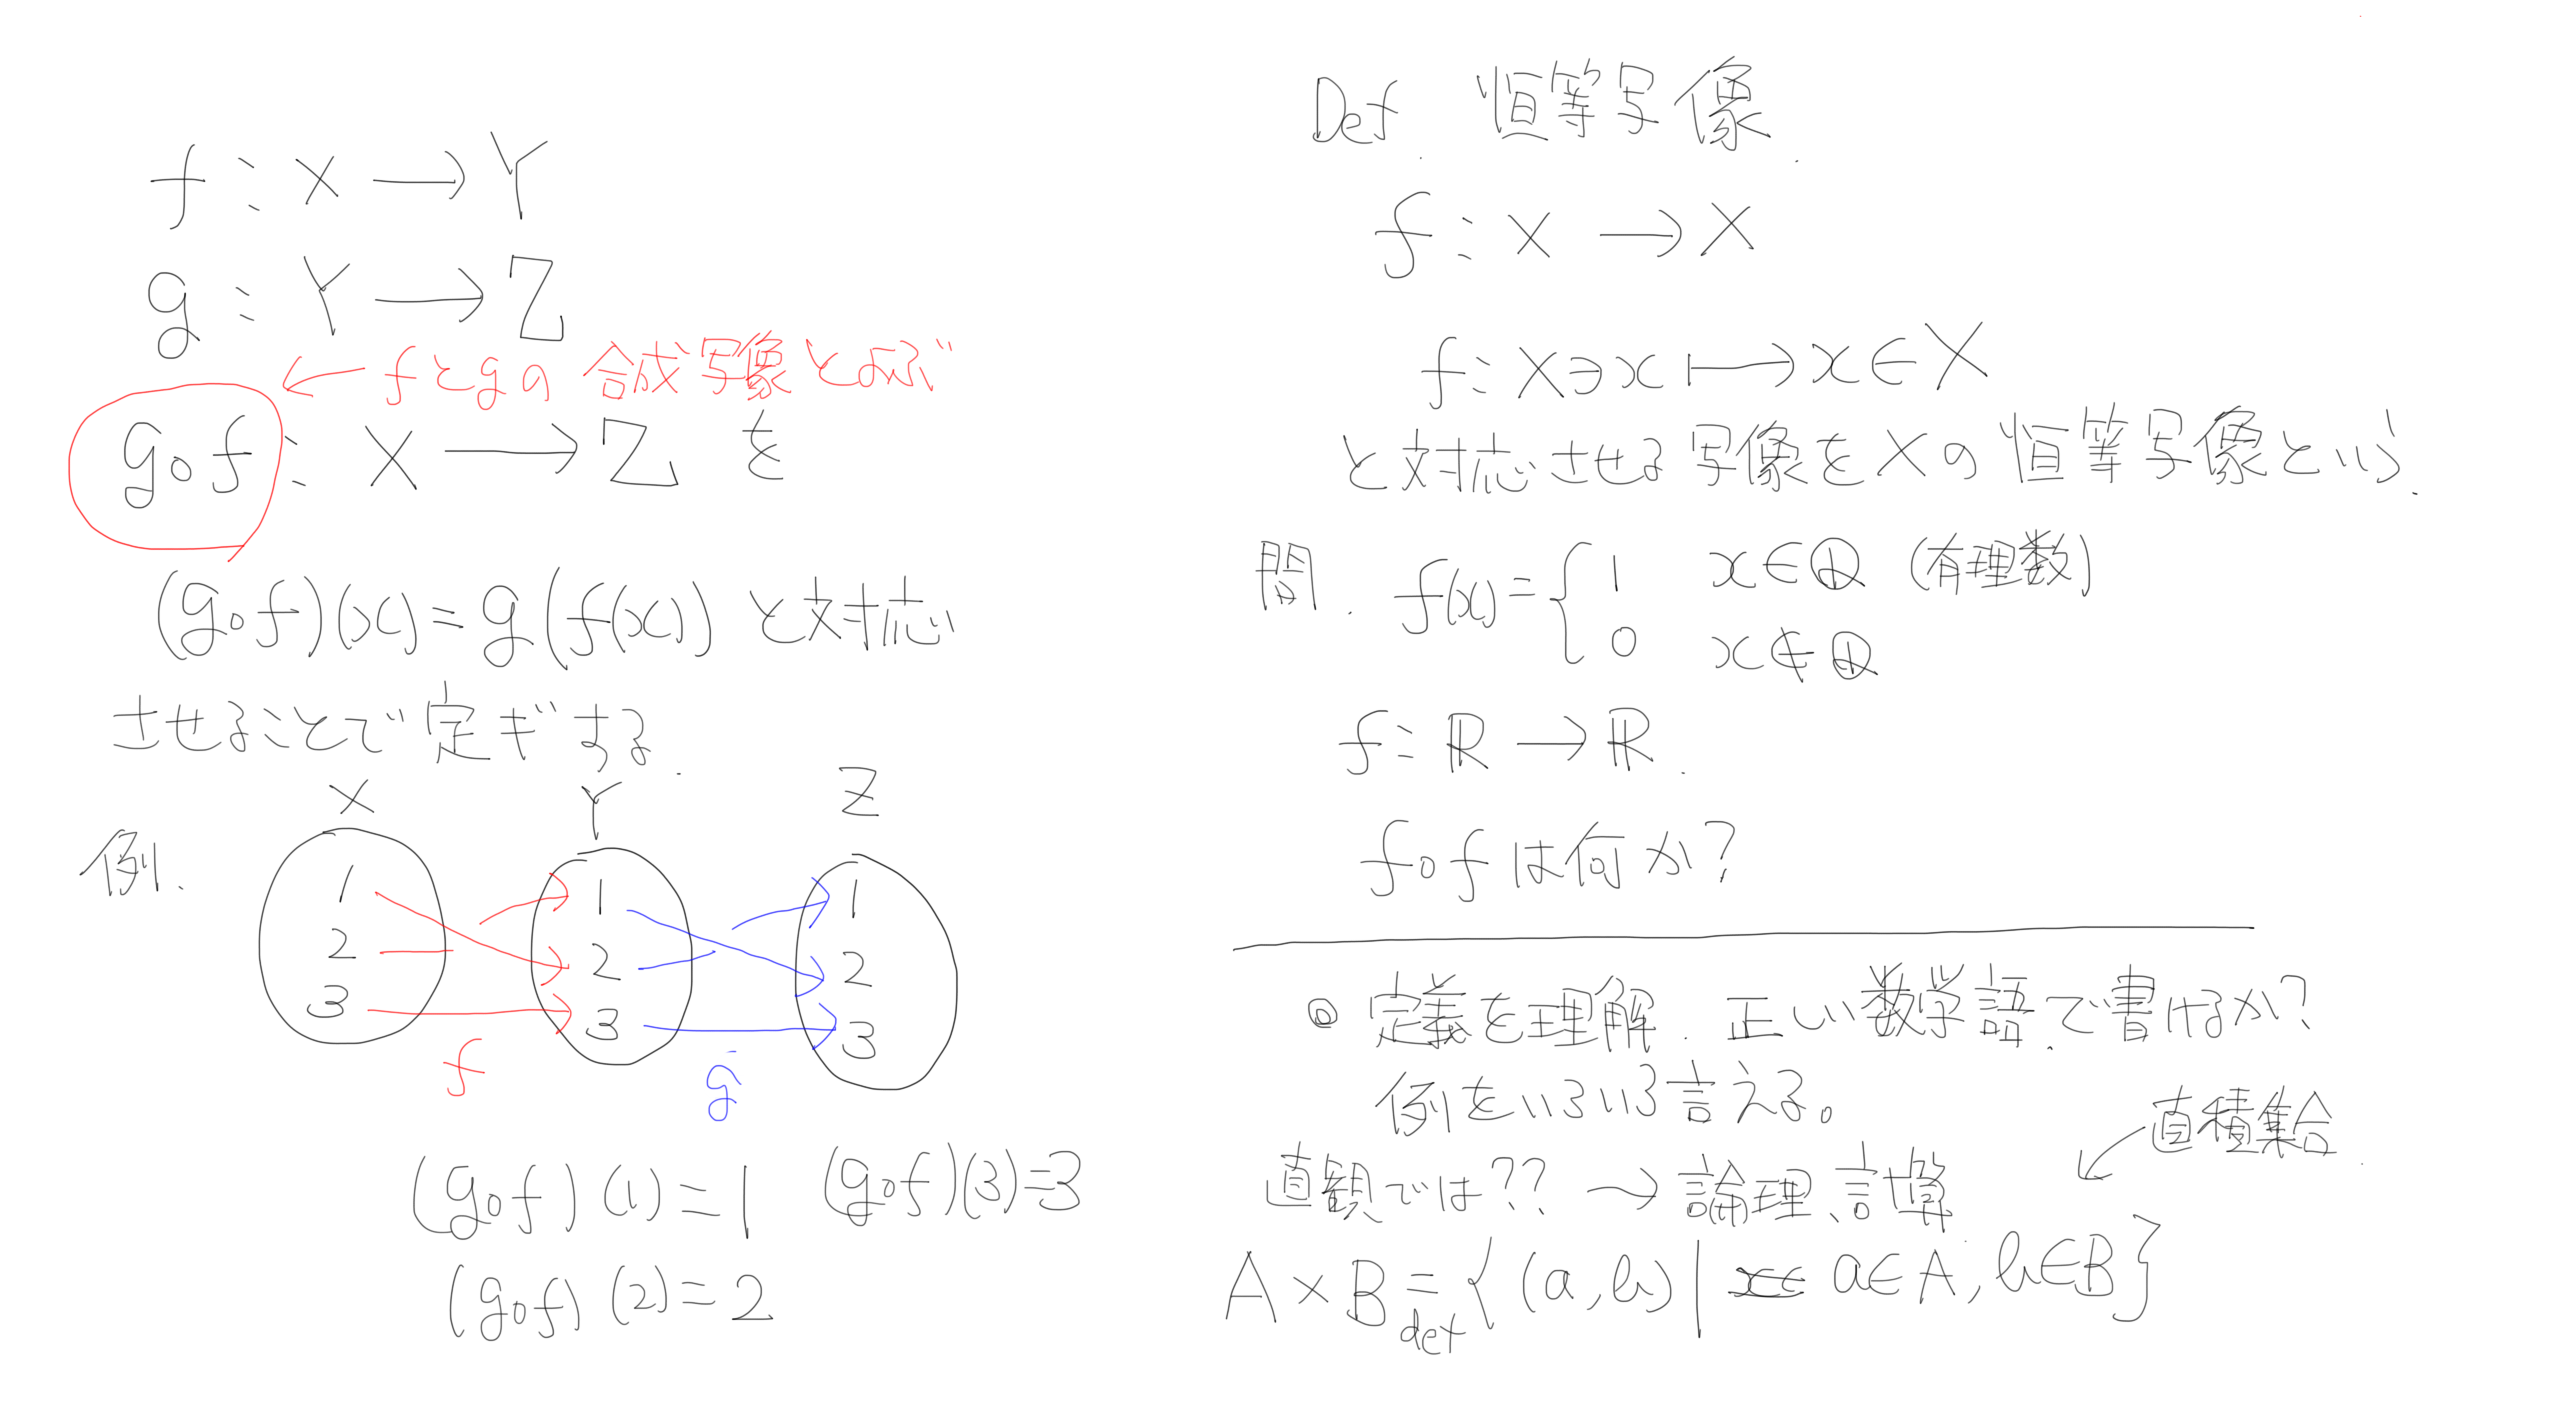 f : X → Y
g : Y → Z
← fとgの合成写像とよぶ
g∘f : X → Z を
(g∘f)(x) = g(f(x)) と対応
させることで定ギする.
例.
X Y Z
1 1 1
2 2 2
3 3 3
f g
(g∘f)(1)=1 (g∘f)(3)=3
(g∘f)(2)=2
Def. 恒等写像.
f : X → X
f : X∋x ⟼ x∈X
と対応させる写像をXの恒等写像という.
問. f(x) = { 1 x∈ℚ (有理数)
0 x∉ℚ
f : ℝ → ℝ.
f∘f は何か?
◎ 定義を理解. 正しい数学語で書けるか?
例をいろいろ言える。
直積集合.
直観では?? → 論理、計算
A×B =def { (a,b) | a∈A, b∈B }